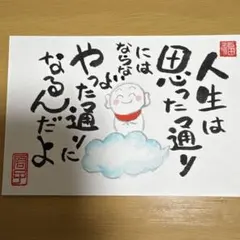 人生は
思った通り
には
ならないよ
やった通りに
なるんだよ